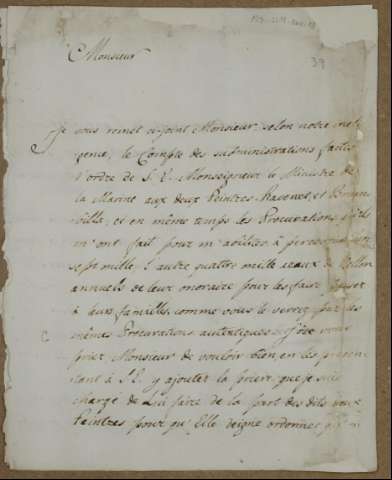 Monsieur
39
Je vous remet cijoint Monsieur selon notre intel-
gence, le Compte des sudministrations faites
d'ordre de S. E. Monseigneur le Ministre de
la Marine aux deux Peintres Ravenet, et Bram-
villa, et en même temps les Procurations qu'ils
m'ont fait pour m'
sept mille, l'autre quatre mille reaux de Vellon
annuels de leur onoraire pour les faire passer
à leurs familles, comme vous le verrez par les
mêmes Procurations autentiques; J'ose vous
prier Monsieur de vouloir bien en les presen-
tant à S. E. y ajouter la priere que je suis
chargé de Lui faire de la part des dits deux
Peintres pour qu'Elle deigne ordonner